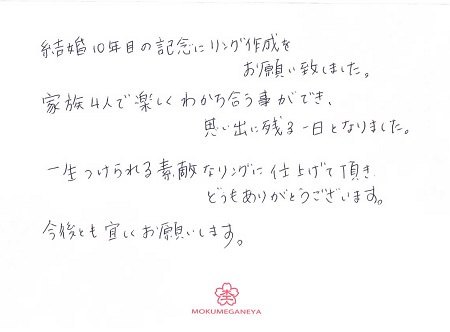 結婚10年目の記念にリング作成を
お願い致しました。
家族4人で楽しくわかち合う事ができ、
思い出に残る一日となりました。
一生つけられる素敵なリングに仕上げて頂き
どうもありがとうございます。
今後とも宜しくお願いします。
MOKUMEGANEYA